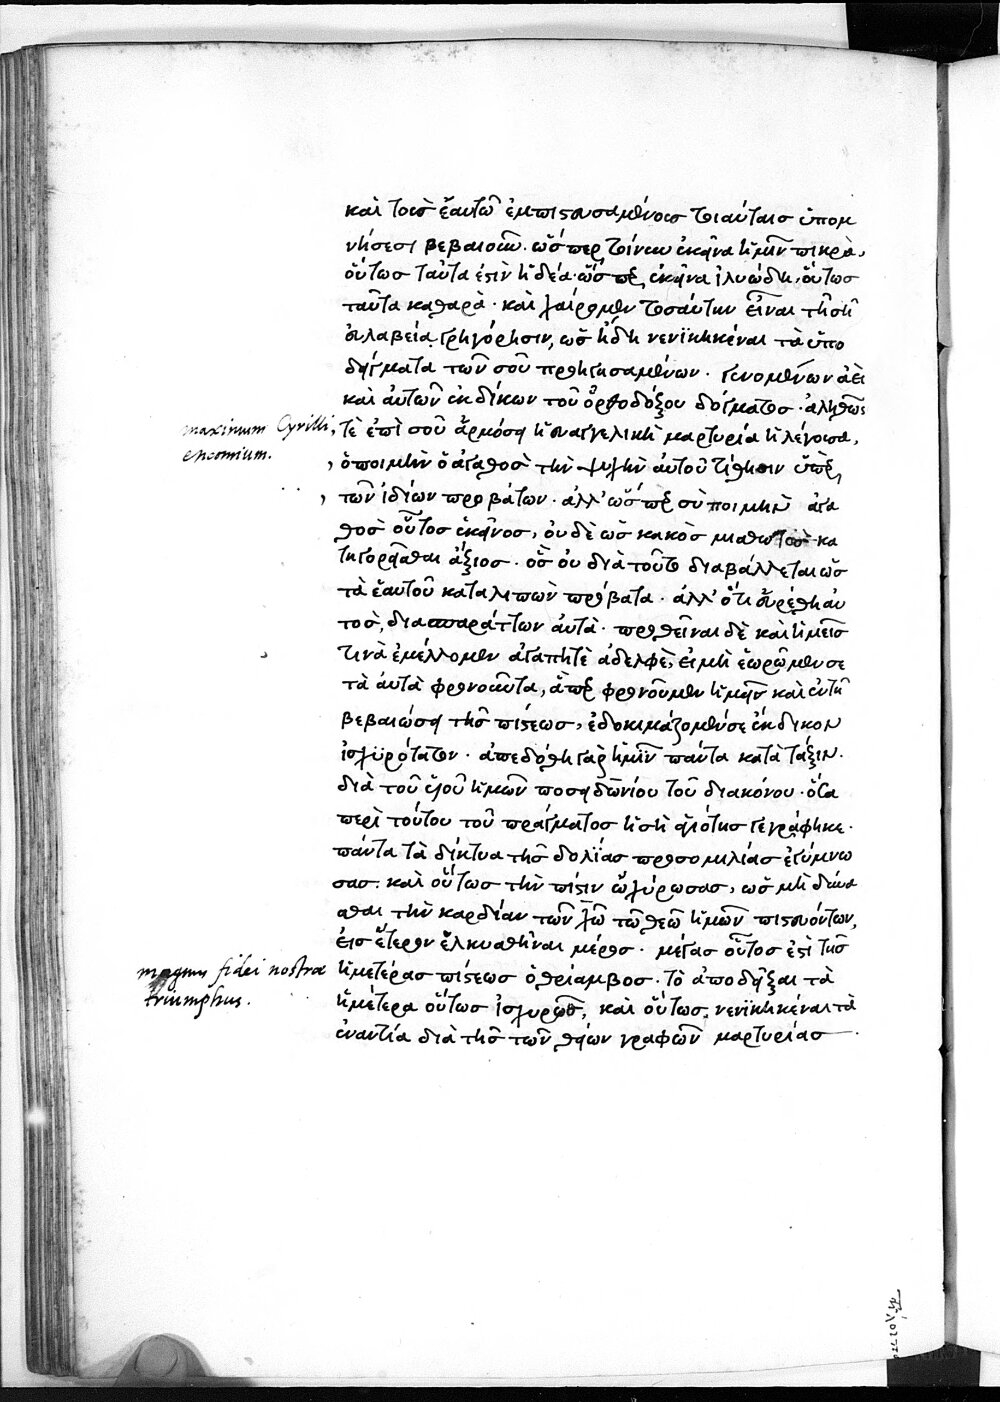 καὶ τοῖς ἑαυτῶ ἐμπιστευσαμένοις τοιαύταις ὑπομ
νήσεσι βεβαιοῖν. ὥσπερ τοίνυν ἐκεῖνα ἡμῖν πικρὰ,
οὕτως ταῦτα ἐστὶν ἡδέα· ὥσπερ ἐκεῖνα ἰλυώδη, οὕτως
ταῦτα καθαρὰ · καὶ χαίρομεν τοσαύτην εἶναι τῆ σῆ
εὐλαβεία γρηγόρησιν, ὡς ἤδη νενικηκέναι τὰ ὑπο
δείγματα τῶν σοῦ προηγησαμένων · γενομένων ἀεὶ
καὶ αὐτῶν ἐκδίκων τοῦ ὀρθοδόξου δόγματος · ἀληθῶς
maximum Cyrilli
encomium.
τὲ ἐπὶ σοῦ ἁρμόσει ἡ εὐαγγελικὴ μαρτυρία ἡ λέγουσα,
ὁ ποιμὴν ὁ ἀγαθὸς τὴν ψυχὴν αὐτοῦ τίθησιν ὑπὲρ
τῶν ἰδίων προβάτων · ἀλλ' ὥσπερ σὺ ποιμὴν ἀγα
θὸς οὕτως ἐκεῖνος, οὐδὲ ὡς κακὸς μισθωτὸς κα
τηγορεῖσθαι ἄξιος · ὃς οὐ διὰ τοῦτο διαβάλλεται ὡς
τὰ ἑαυτοῦ καταλιπὼν πρόβατα · ἀλλ' ὅτι εὑρέθη αὐ
τὸς, διασπαράττων αὐτὰ · προθεῖναι δὲ καὶ ἡμεῖς
τινὰ ἐμέλλομεν ἀγαπητὲ ἀδελφὲ, εἰ μὴ ἑωρῶμεν σε
τὰ αὐτὰ φρονοῦντα, ἅπερ φρονοῦμεν ἡμεῖς καὶ ἐν τῆ
βεβαιώσει τῆς πίστεως, ἐδοκιμάζομέν σε ἔκδικον
ἰσχυρότατον · ἀπεδόθη γὰρ ἡμῖν πάντα κατὰ τάξιν ·
διὰ τοῦ υἱοῦ ἡμῶν ποσειδωνίου τοῦ διακόνου · ὅσα
περὶ τούτου τοῦ πράγματος ἡ σὴ ἁγιότης γεγράφηκε ·
πάντα τὰ δίκτυα τῆς δολίας προσομιλίας ἐγύμνω
σας · καὶ οὕτως τὴν πίστιν ὠχύρωσας, ὡς μὴ δύνα
σθαι τὴν καρδίαν τῶν χῶ τῶ θεῶ ἡμῶν πιστευόντων,
εἰς ἕτερον ἑλκυσθῆναι μέρος · μέγας οὗτος ἐστὶ τῆς
magnus fidei nostrae
triumphus.
ἡμετέρας πίστεως ὁ θρίαμβος · τὸ ἀποδεῖξαι τὰ
ἡμέτερα οὕτως ἰσχυρῶς, καὶ οὕτως νενικηκέναι τὰ
ἐναντία διὰ τῆς τῶν θείων γραφῶν μαρτυρίας